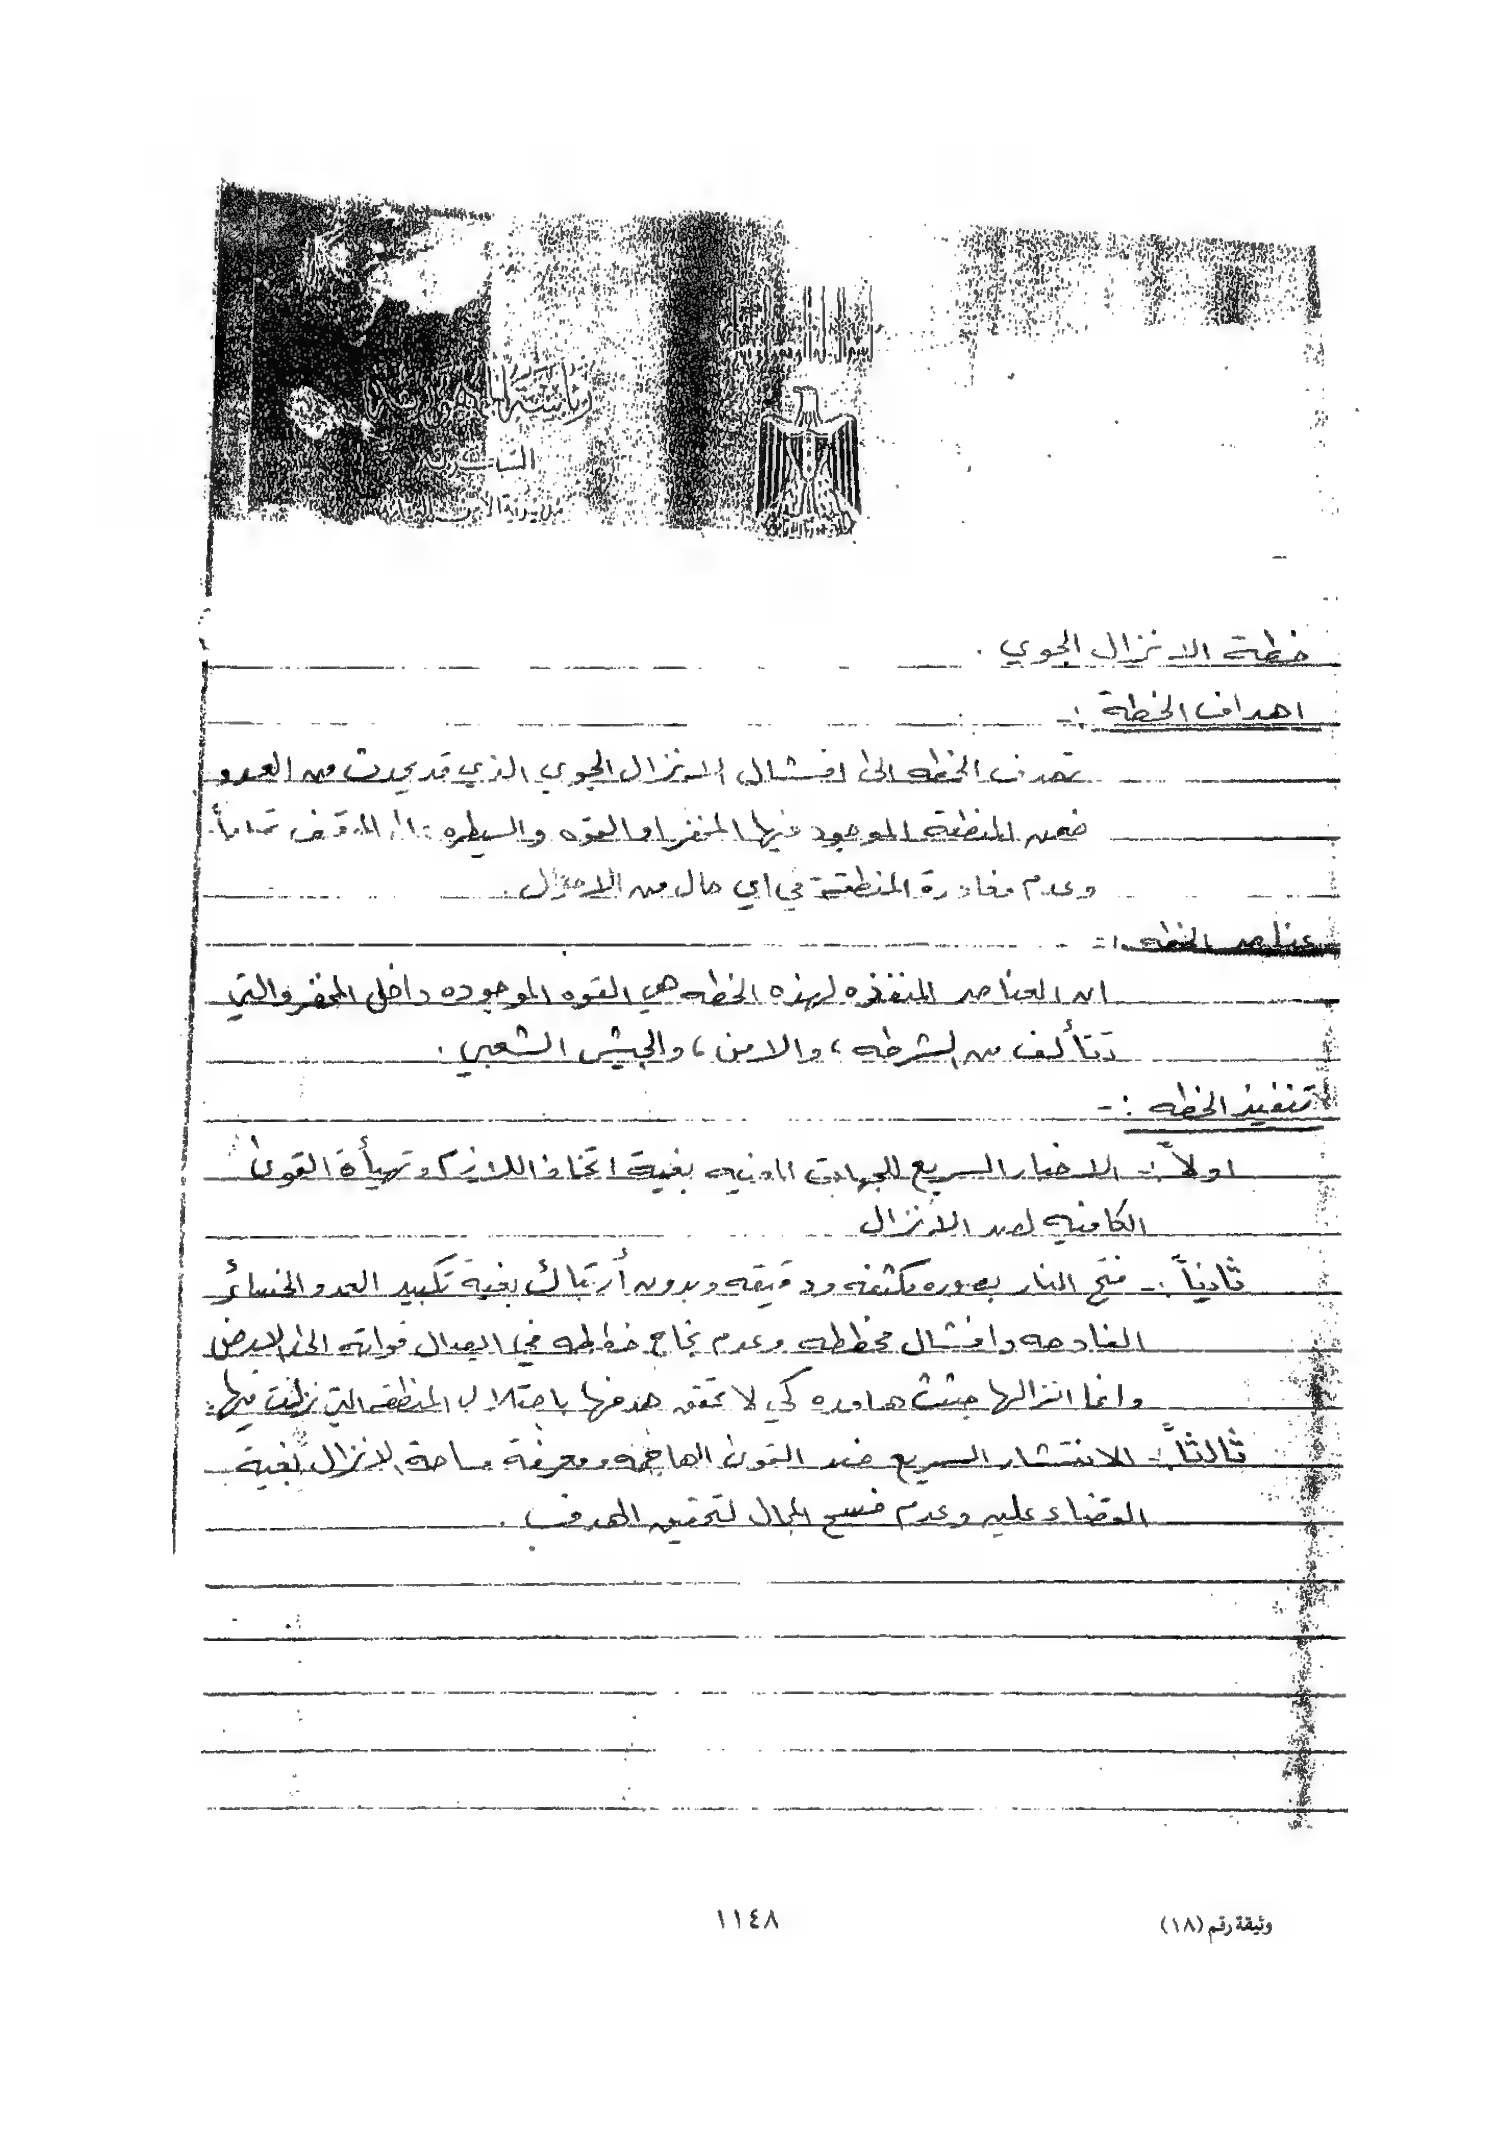 رئاسة الجمهورية
خطة الانزال الجوي .
اهداف الخطة :-
تهدف الخطه الى افشال الانزال الجوي الذي قد يحدث من العدو
ضمن المنطقة الموجود فيها المخفر او القوه والسيطره على الموقف تماماً.
وعدم مغادرة المنطقة في اي حال من الاحوال .
عناصر الخطه :-
ان العناصر المنفذه لهذه الخطه هي القوه الموجوده داخل المخفر والتي
تتألف من الشرطه ، والامن ، والجيش الشعبي .
تنفيذ الخطه :-
اولاً :- الاخبار السريع للجهات المعنيه بغية اتخاذ اللازم وتهيأة القوى
الكامنه لصد الانزال
ثانياً :- فتح النار بصوره مكثفه ودقيقه وبدون أرتباك بغية تكبيد العدو الخسائر
الفادحه وافشال مخططه وعدم نجاح خططه في ايصال قواته الى الارض
وانما انزالها جثث هامده كي لا تحقق هدفها باحتلال المنطقه التي نزلت فيها.
ثالثاً :- الانتشار السريع ضد القوى الهاجمه ومعرفة مساحة الانزال بغية
القضاء عليه وعدم فسح المجال لتحقيق الهدف .
١١٤٨
وثيقة رقم (١٨)